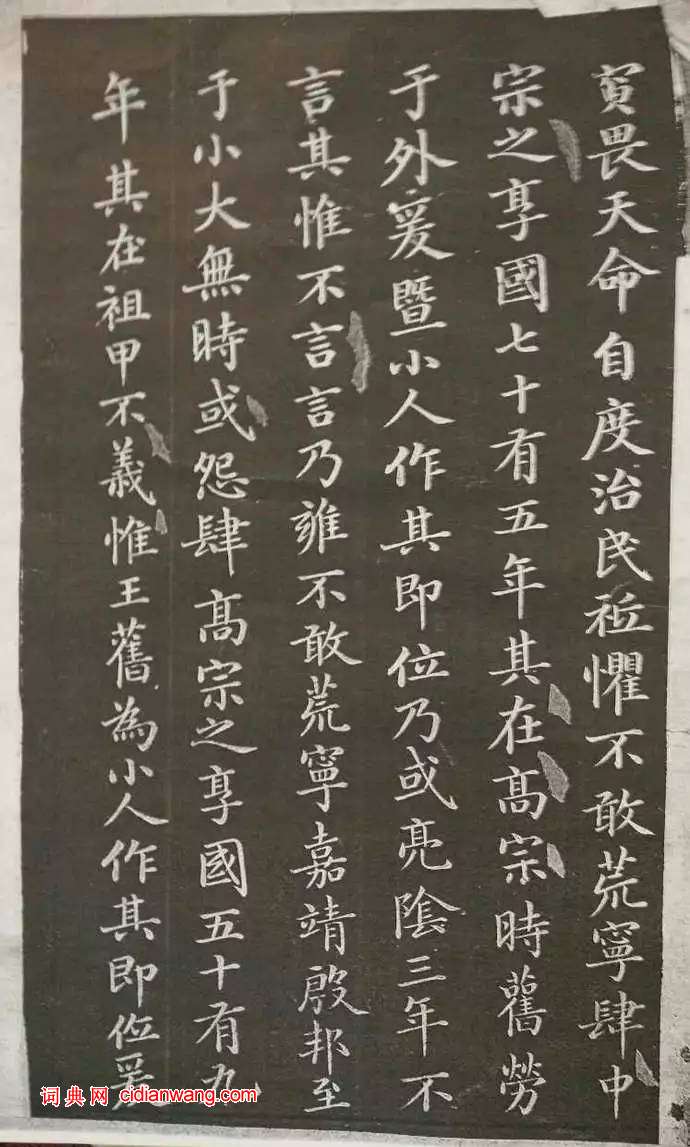 寅畏天命自度治民祗懼不敢荒寧肆中
宗之享國七十有五年其在髙宗時舊勞
于外爰暨小人作其即位乃或亮陰三年不
言其惟不言言乃雍不敢荒寧嘉靖殷邦至
于小大無時或怨肆髙宗之享國五十有九
年其在祖甲不義惟王舊為小人作其即位爰
词典网 cidianwang.com